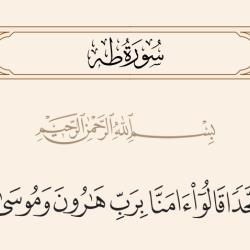 سُورَةُ طه
بِسْمِ اللَّهِ الرَّحْمَٰنِ الرَّحِيمِ
قَالُوٓا۟ ءَامَنَّا بِرَبِّ هَٰرُونَ وَمُوسَىٰ